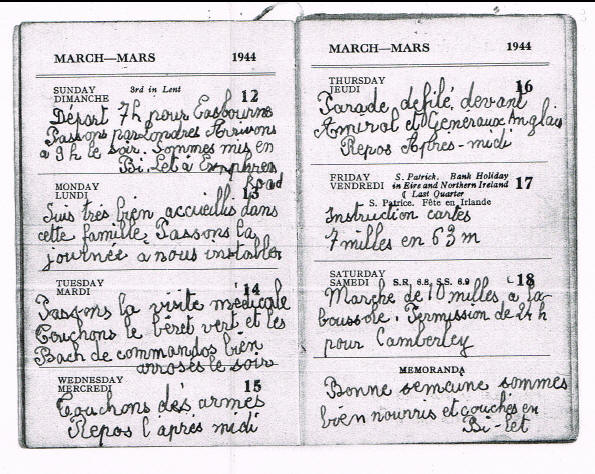 MARCH—MARS 1944
SUNDAY 3rd in Lent 12
DIMANCHE
Départ 7h pour Easbourne
Passons par Londres Arrivons
a 9h le soir. Sommes mis en
Bi. Let à
Road
MONDAY 13
LUNDI
Suis très bien accueillis dans
cette famille. Passons la
journée à nous installer
TUESDAY 14
MARDI
Passons la visite médicale
Touchons le béret vert et les
Bach de commandos bien
arrosés le soir
WEDNESDAY 15
MERCREDI
Touchons des armes
Repos l'après midi
MARCH—MARS 1944
THURSDAY 16
JEUDI
Parade, défilé, devant
Amiral et Généraux Anglais
Repos Après-midi
FRIDAY S. Patrick. Bank Holiday 17
VENDREDI in Eire and Northern Ireland
☾ Last Quarter
S. Patrice. Fête en Irlande
Instruction cartes
7 milles en 63m
SATURDAY 18
SAMEDI S.R. 6.8, S.S. 6.9
Marche de 10 milles, a la
boussole. Permission de 24h
pour Camberley
MEMORANDA
Bonne semaine sommes
bien nourris et couchés en
Bi-Let